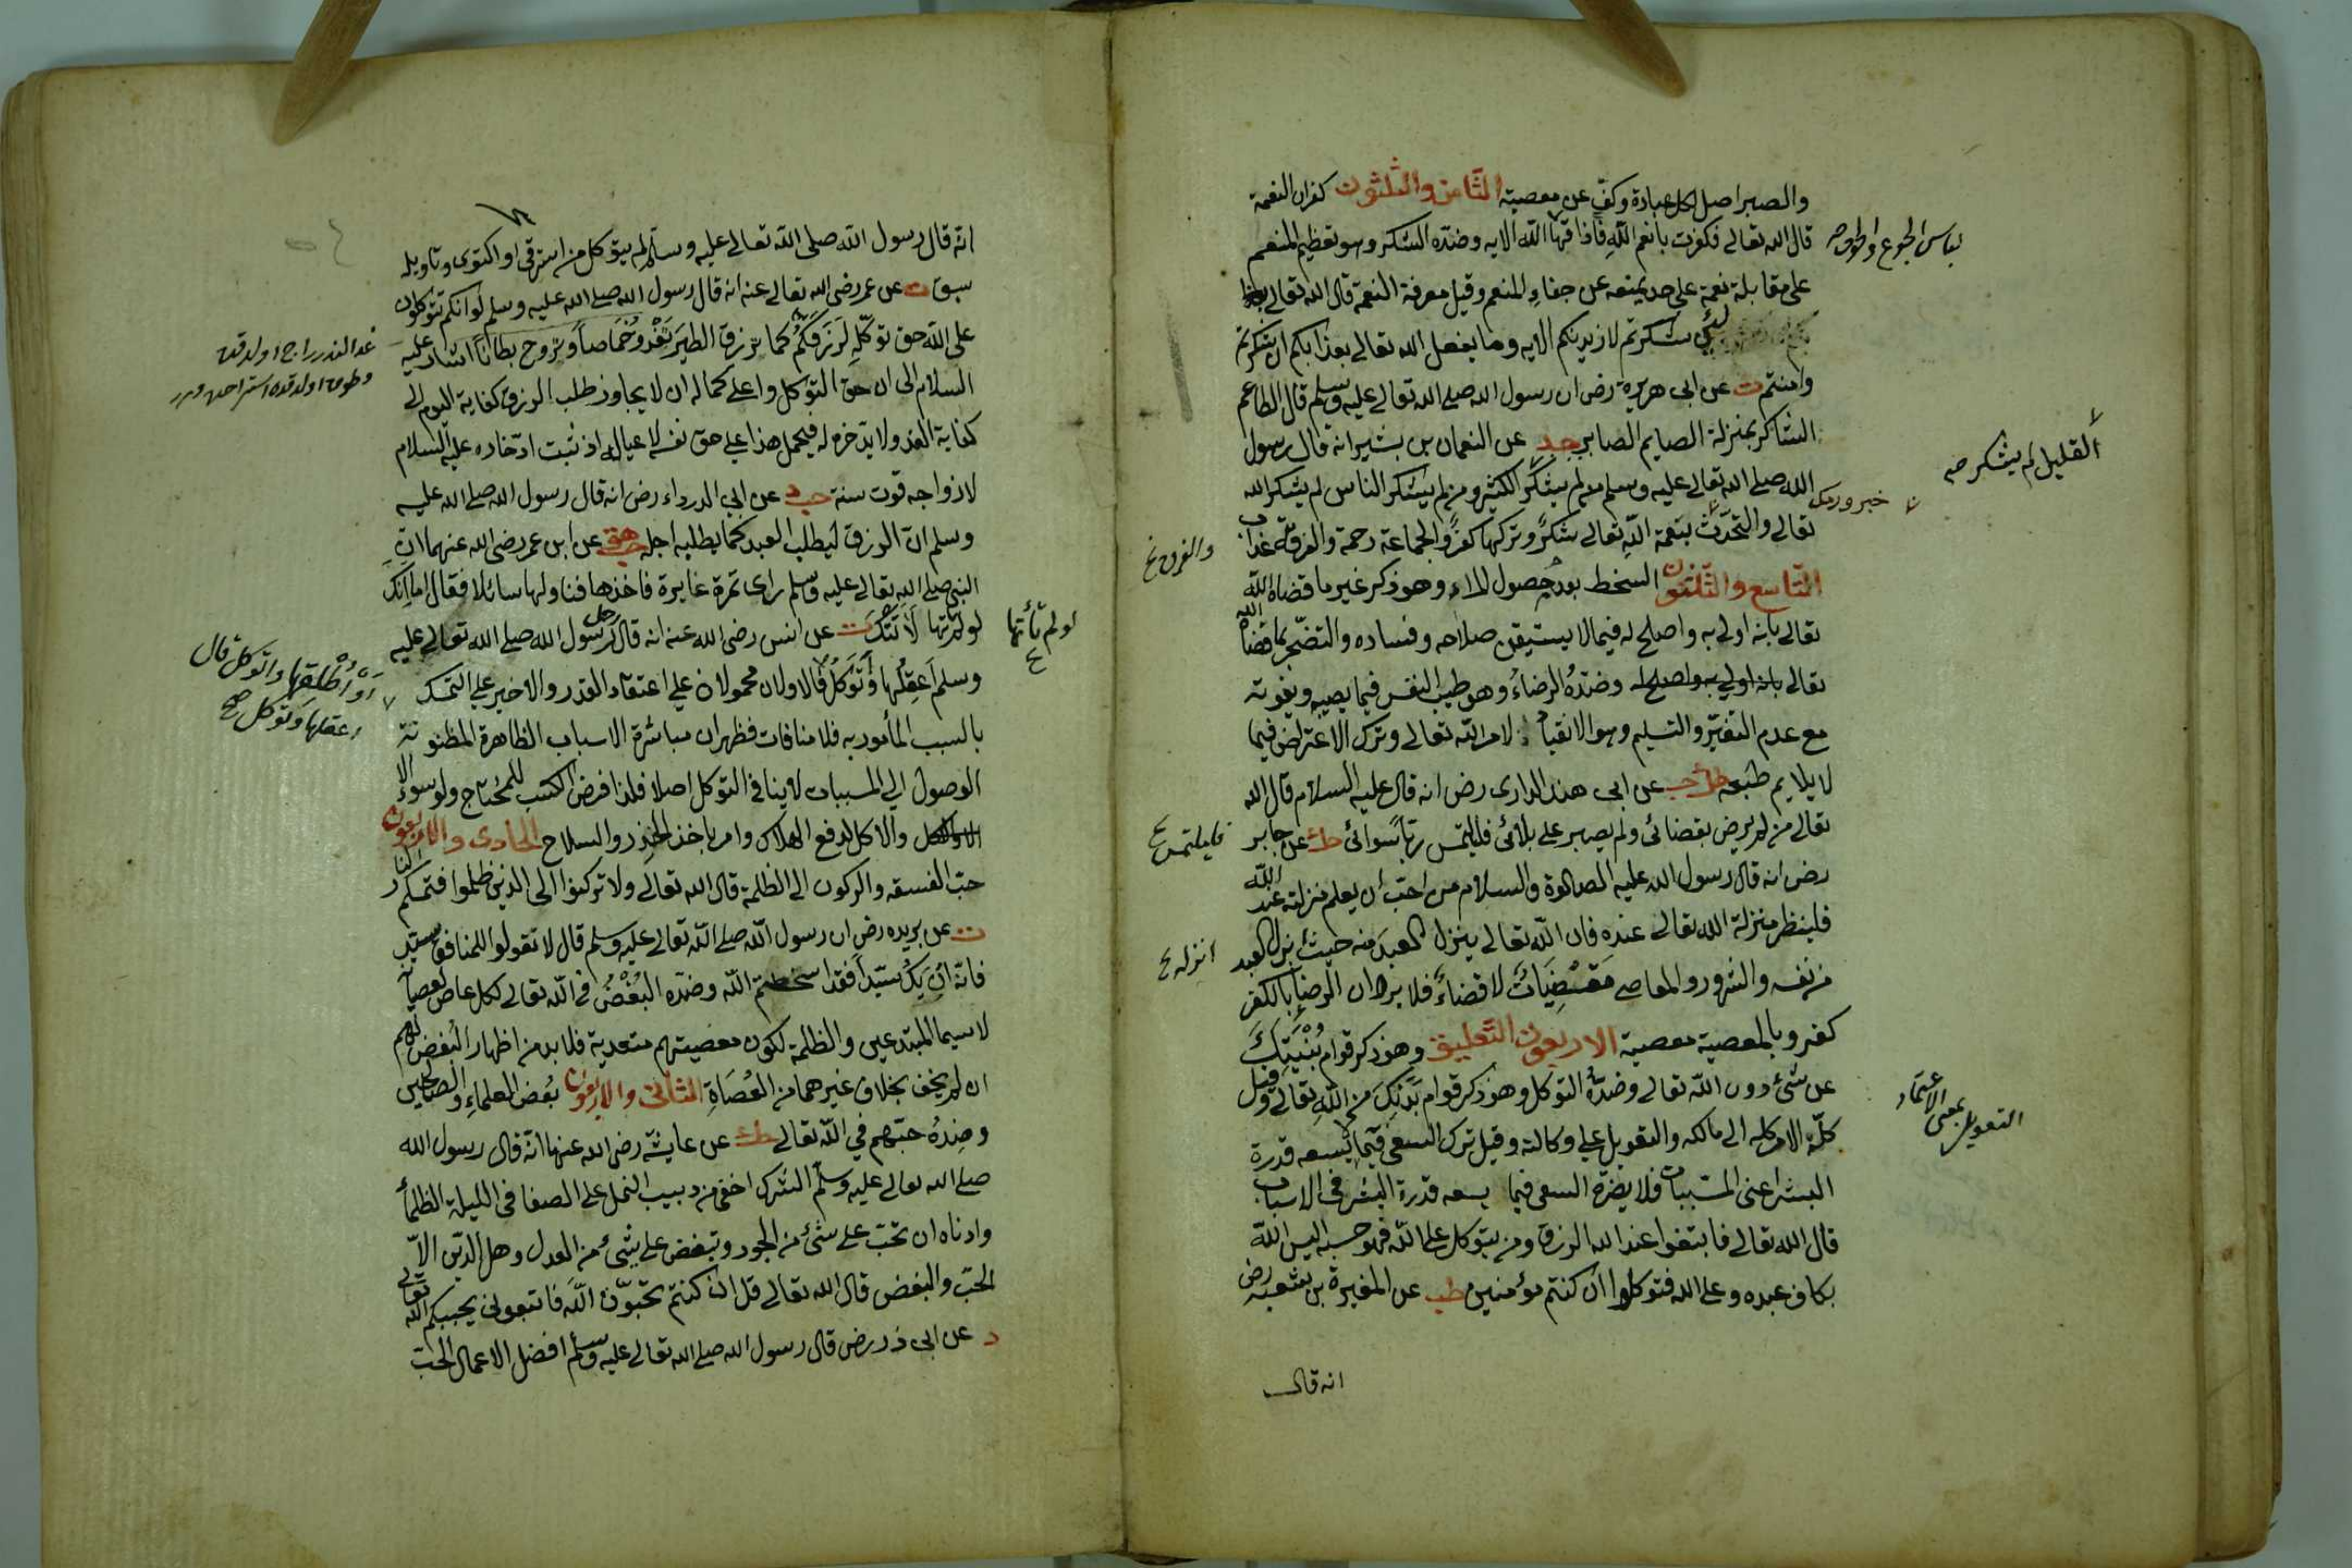 والصبر اصل كل عبادة وكف عن معصية الثامن والثلثون كفران النعمة
قال الله تعالى فكفرت بانعم الله فاذاقها الله الايه وضده الشكر وهو تعظيم المنعم
لباس الجوع والخوف صح
على مقابلة نعمة على حد يمنعه عن جفاء المنعم وقيل معرفة النعمة قال الله تعالى
لئن شكرتم لازيدنكم الايه وما يفعل الله تعالى بعذابكم ان شكرتم
وامنتم ت عن ابى هريرة رض ان رسول الله صلى الله تعالى عليه وسلم قال الطاعم
الشاكر بمنزلة الصايم الصابر حد عن النعمان بن بشير انه قال رسول
الله صلى الله تعالى عليه وسلم من لم يشكر الكثير ومن لم يشكر الناس لم يشكر الله
القليل لم يشكر صح
تعالى والتحدث بنعمة الله تعالى شكر وتركها كفر والجماعة رحمة والفرقة عذاب
التاسع والثلثون السخط بعدم حصول المراد وهو ذكر غير ما قضاه الله
تعالى بانه اولى به واصلح له فيما لا يستيقن صلاحه وفساده والتضجر بما قضاه الله
تعالى بانه اولى به واصلح له وضده الرضاء وهو طيب النفس فيما يصيبه ويفوته
مع عدم التغير والتسليم وهو الانقياد لامر الله تعالى وترك الاعتراض فيما
لا يلايم طبعه طك حب عن ابى هند الدارى رض انه قال عليه السلام قال الله
تعالى من لم يرض بقضائى ولم يصبر على بلائى فليلتمس ربا سوائى حك عن جابر
فليلتمس خ
رض انه قال رسول الله عليه الصلوة والسلام من احب ان يعلم منزلته عند الله
فلينظر منزلة الله تعالى عنده فان الله تعالى ينزل العبد منه حيث ينزل العبد
انزله خ
من نفسه والشرور والمعاصى مقضيات لا قضاء فلا يرد ان الرضا بالكفر
كفر وبالمعصية معصية الاربعون التعليق وهو ذكر قوام بنيتك
عن شئ دون الله تعالى وضده التوكل وهو ذكر قوام بدنك من الله تعالى وقيل
كلة الامر كله الى مالكه والتعويل على وكالته وقيل ترك السعى فيما لا يسعه قدرة
التعويل بمعنى الاعتماد
البشر اعنى المسببات فلا يضره السعى فيما يسعه قدرة البشر فى الاسباب
قال الله تعالى فابتغوا عند الله الرزق ومن يتوكل على الله فهو حسبه اليس الله
بكاف عبده وعلى الله فتوكلوا ان كنتم مؤمنين طب عن المغيرة بن شعبه رض
انه قال
انه قال رسول الله صلى الله تعالى عليه وسلم لم يتوكل من استرقى او اكتوى وتاويله
سبق ت عن عمر رضى الله تعالى عنه انه قال رسول الله صلى الله عليه وسلم لو انكم تتوكلون
على الله حق توكله لرزقكم كما يرزق الطير تغدو خماصا وتروح بطانا اشار عليه
السلام الى ان حق التوكل واعلى كماله ان لا يجاوز طلب الرزق كفاية اليوم الى
كفاية الغد ولا يدخره له فيحمل هذا على حق نفسه لا عياله اذ ثبت ادخاره عليه السلام
لازواجه قوت سنة حب عن ابى الدرداء رض انه قال رسول الله صلى الله عليه
وسلم ان الرزق ليطلب العبد كما يطلبه اجله حب هق عن ابن عمر رضى الله عنهما ان
النبى صلى الله تعالى عليه وسلم راى تمرة غايرة فاخذها فناولها سائلا فقال اما انك
لو لم تأتها لاتتك ت عن انس رضى الله عنه انه قال رجل لرسول الله صلى الله تعالى عليه
او لم تأتها خ
وسلم أعقلها وأتوكل فالاولان محمولان على اعتقاد القدر والاخير على التمسك
او أطلقها واتوكل قال
اعقلها وتوكل صح
بالسبب المأمور به فلا منافات فظهر ان مباشرة الاسباب الظاهرة المظنونة
الوصول الى المسببات لا ينافى التوكل اصلا فلذا فرض الكسب للمحتاج ولو سوءا
والاكل لدفع الهلاك وامر باخذ الحذر والسلاح الحادى والاربعون
حب الفسقه والركون الى الظلمة قال الله تعالى ولا تركنوا الى الذين ظلموا فتمسكم النار
ت عن بريده رض ان رسول الله صلى الله تعالى عليه وسلم قال لا تقولوا للمنافق سيد
فانه ان يك سيدا فقد اسخطتم الله وضده البغض فى الله تعالى لكل عاص لعصيانه
لا سيما المبتدعين والظلمة لكون معصيتهم متعدية فلا بد من اظهار البغض لهم
ان لم يخف بخلاف غيرهما من العصاة الثانى والاربعون بغض العلماء والصالحين
وضده حبهم فى الله تعالى حك عن عايشة رضى الله عنها انه قال رسول الله
صلى الله تعالى عليه وسلم الشرك اخفى من دبيب النمل على الصفا فى الليلة الظلماء
وادناه ان تحب على شئ من الجور وتبغض على شئ من العدل وهل الدين الا
الحب والبغض قال الله تعالى قل ان كنتم تحبون الله فاتبعونى يحببكم الله تعالى
د عن ابى ذر رض قال رسول الله صلى الله تعالى عليه وسلم افضل الاعمال الحب